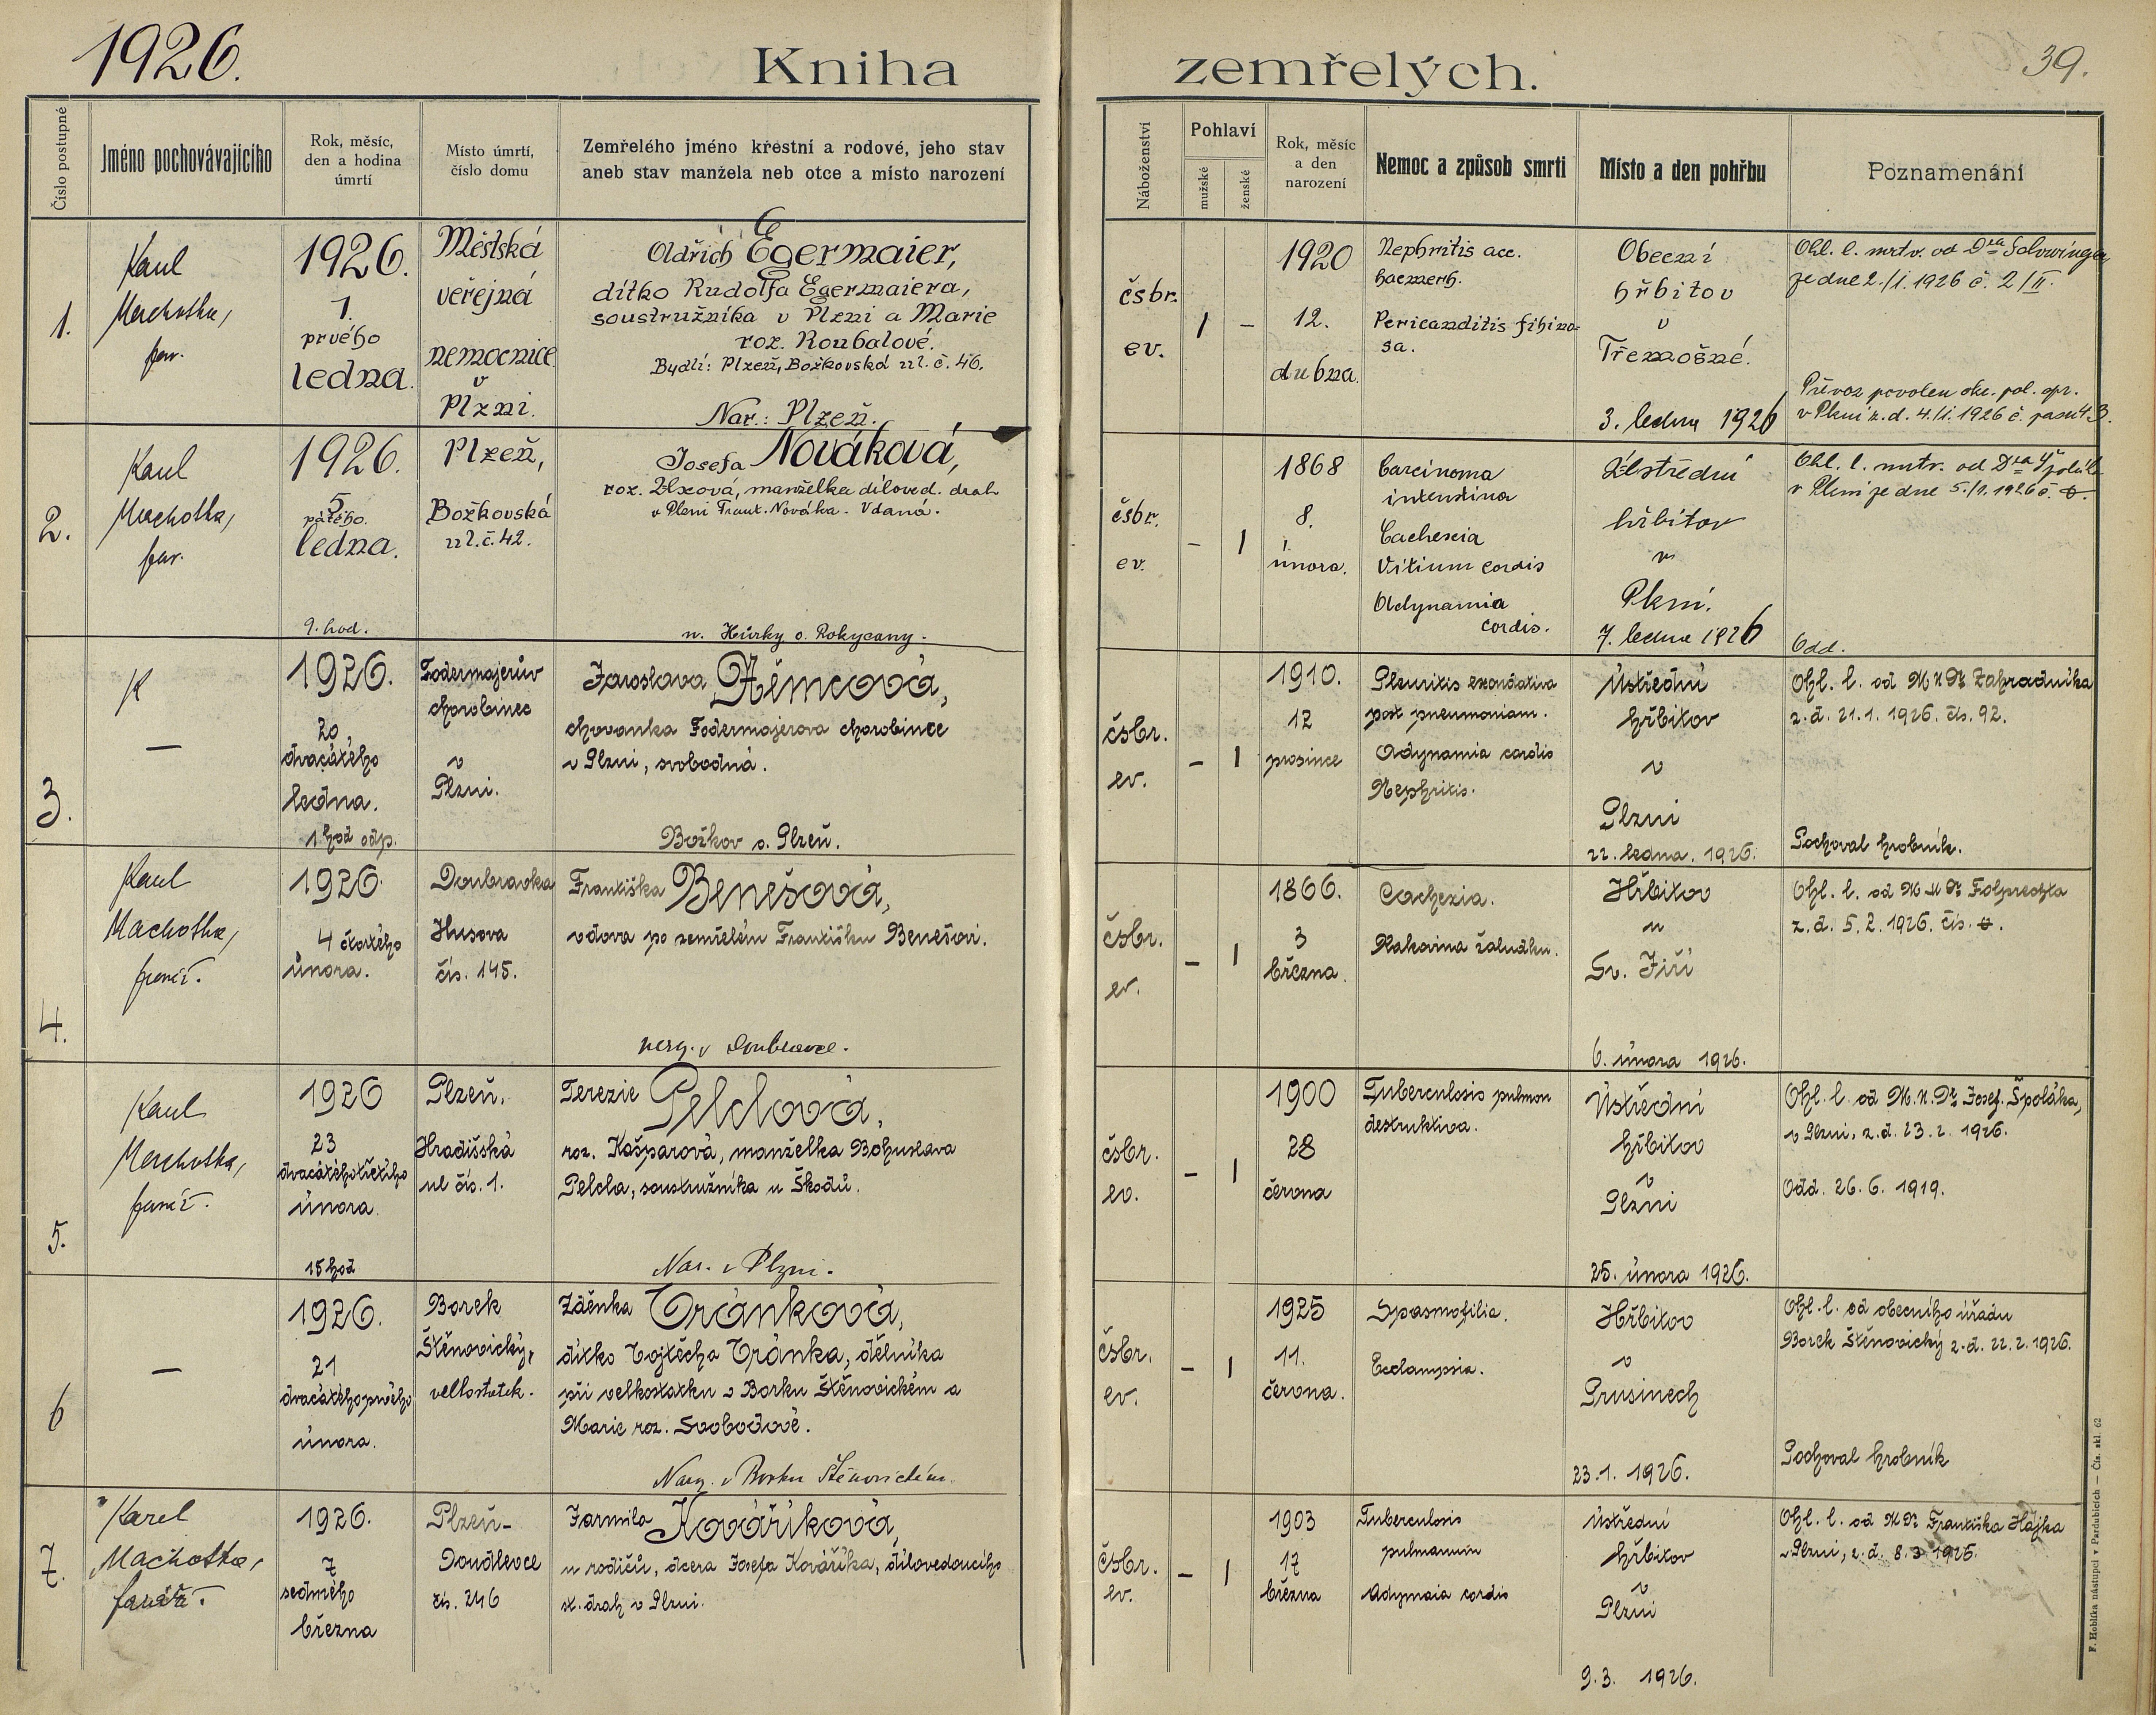 1926.
Kniha zemřelých.
39.
Číslo postupné
Jméno pochovávajícího
Rok, měsíc,
den a hodina
úmrtí
Místo úmrtí,
číslo domu
Zemřelého jméno křestní a rodové, jeho stav
aneb stav manžela neb otce a místo narození
Náboženství
Pohlaví
mužské
ženské
Rok, měsíc
a den
narození
Nemoc a způsob smrti
Místo a den pohřbu
Poznamenání
1.
Karel
Machotka,
far.
1926.
1.
prvého
ledna.
Městská
veřejná
nemocnice
v
Plzni.
Oldřich Egermaier,
dítko Rudolfa Egermaiera,
soustružníka v Plzni a Marie
roz. Roubalové.
Bydlí: Plzeň, Božkovská ul. č. 46.
Nar.: Plzeň.
čsbr.
ev.
1
–
1920
12.
dubna.
Nephritis acc.
haemorh.
Pericarditis fibino-
sa.
Obecní
hřbitov
v
Třemošné.
3. ledna 1926
Ohl. l. mrtv. od Dra
ze dne 2./1. 1926 č. 2/II.
Převoz povolen okr. pol. spr.
v Plzni z. d. 4./1. 1926 č. pasu 4.3.
2.
Karel
Machotka,
far.
1926.
5.
pátého.
ledna.
9. hod.
Plzeň,
Božkovská
ul. č. 42.
Josefa Nováková,
roz. manželka díloved. drah
v Plzni Frant. Nováka. Vdaná.
n. Hůrky o. Rokycany.
čsbr.
ev.
–
1
1868
8.
února.
Carcinoma
intestina
Cachexia
Vitium cordis
Adynamia
cordis.
Ústřední
hřbitov
v
Plzni.
7. ledna 1926
Ohl. l. mrtv. od Dra Špoláka
v Plzni ze dne 5./1. 1926 č.
Odd.
3.
K
—
1926.
20
dvacátého
ledna.
1 hod odp.
Fodermajerův
chorobinec
v
Plzni.
Jaroslava Němcová,
chovanka Fodermajerova chorobince
v Plzni, svobodná.
Božkov o. Plzeň.
čsbr.
ev.
–
1
1910.
12
prosince
Pleuritis exsudativa
post pneumoniam.
Adynamia cordis
Nephritis.
Ústřední
hřbitov
v
Plzni
22. ledna. 1926.
Ohl. l. od MUDr Zahradníka
z. d. 21. 1. 1926. čís. 92.
Pochoval hrobník.
4.
Karel
Machotka,
farář.
1926.
4 čtvrtého
února.
Doubravka
Husova
čís. 145.
Františka Benešová,
vdova po zemřelém Františku Benešovi.
narz. v Doubravce.
čsbr.
ev.
–
1
1866.
3
března.
Cachexia.
Rakovina žaludku.
Hřbitov
u
Sv. Jiří
6. února 1926.
Ohl. l. od MUDr Folprechta
z. d. 5. 2. 1926. čís.
5.
Karel
Machotka,
farář.
1926
23
dvacátéhotřetího
února.
15 hod
Plzeň,
Hradišská
ul čís. 1.
Terezie Pelclová,
roz. Kašparová, manželka Bohuslava
Pelcla, soustružníka u Škodů.
Nar. v Plzni.
čsbr.
ev.
–
1
1900
28
června
Tuberculosis pulmon
destruktiva.
Ústřední
hřbitov
v
Plzni
25. února 1926.
Ohl. l. od M.U.Dr Josef. Špoláka,
v Plzni, z. d. 23. 2. 1926.
Odd. 26. 6. 1919.
6
—
1926.
21
dvacátéhoprvého
února.
Borek
Štěnovický,
velkostatek.
Zdeňka Vránková,
dítko Vojtěcha Vránka, dělníka
při velkostatku v Borku Štěnovickém a
Marie roz. Svobodové.
Narz. v Borku Štěnovickém.
čsbr.
ev.
–
1
1925
11.
června.
Spasmofilia.
Ecclampsia.
Hřbitov
v
Prusinech
23. 1. 1926.
Ohl. l. od obecního úřadu
Borek Štěnovický z. d. 22. 2. 1926.
Pochoval hrobník
7.
Karel
Machotka,
farář.
1926.
7
sedmého
března
Plzeň-
Doudlevce
čís. 246
Jarmila Kováříková,
u rodičů, dcera Josefa Kováříka, dílovedoucího
st. drah v Plzni.
čsbr.
ev.
–
1
1903
17
března
Tuberculosis
pulmonum
Adymaia cordis
Ústřední
hřbitov
v
Plzni
9. 3. 1926.
Ohl. l. od MDr Františka Hájka
v Plzni, z. d. 8. 3 1926.
F. Hoblíka nástupci v Pardubicích — Čís. skl. 62